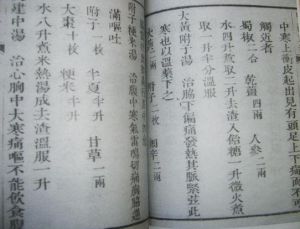 中寒上衝皮起出見有頭足上下痛而
觸近者
蜀椒二合 乾薑四兩 人參二兩
水四升煮取二升去渣入飴糖一升微火煎
取一升半分溫服
大黃附子湯 治脇下偏痛發熱其脈緊弦此
寒也以溫藥下之
附子粳米湯 治腹中寒氣雷鳴切痛胸脇逆
滿嘔吐
附子一枚 半夏半升 甘草一兩
大棗十枚 粳米半升
水八升煮米熱湯成去渣溫服一升
建中湯 治心胸中大寒痛嘔不能飲食腹